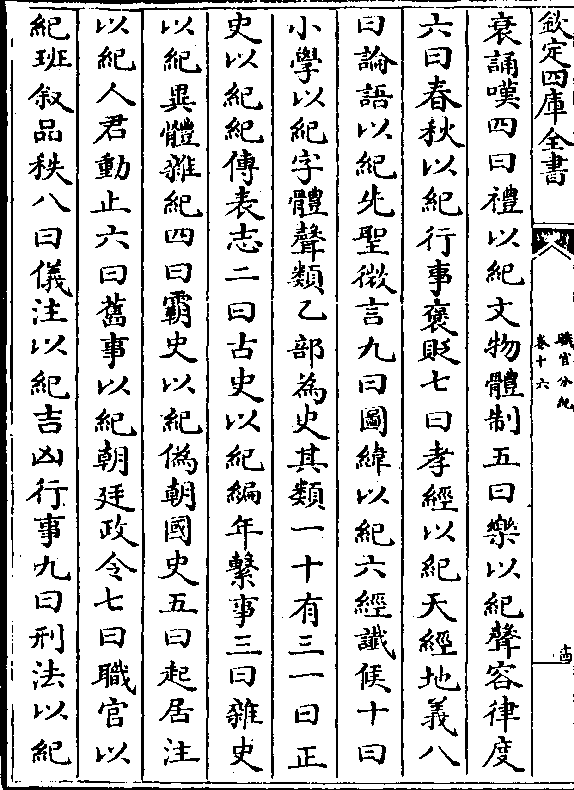 欽定四庫全書
職官分紀
卷十六
十四
衰誦嘆四曰禮以紀文物體制五曰樂以紀聲容律度
六曰春秋以紀行事褒貶七曰孝經以紀天經地義八
曰論語以紀先聖微言九曰圖緯以紀六經讖候十曰
小學以紀字體聲類乙部為史其類一十有三一曰正
史以紀紀傳表志二曰古史以紀編年繫事三曰雜史
以紀異體雜紀四曰霸史以紀偽朝國史五曰起居注
以紀人君動止六曰舊事以紀朝廷政令七曰職官以
紀班叙品秩八曰儀注以紀吉凶行事九曰刑法以紀